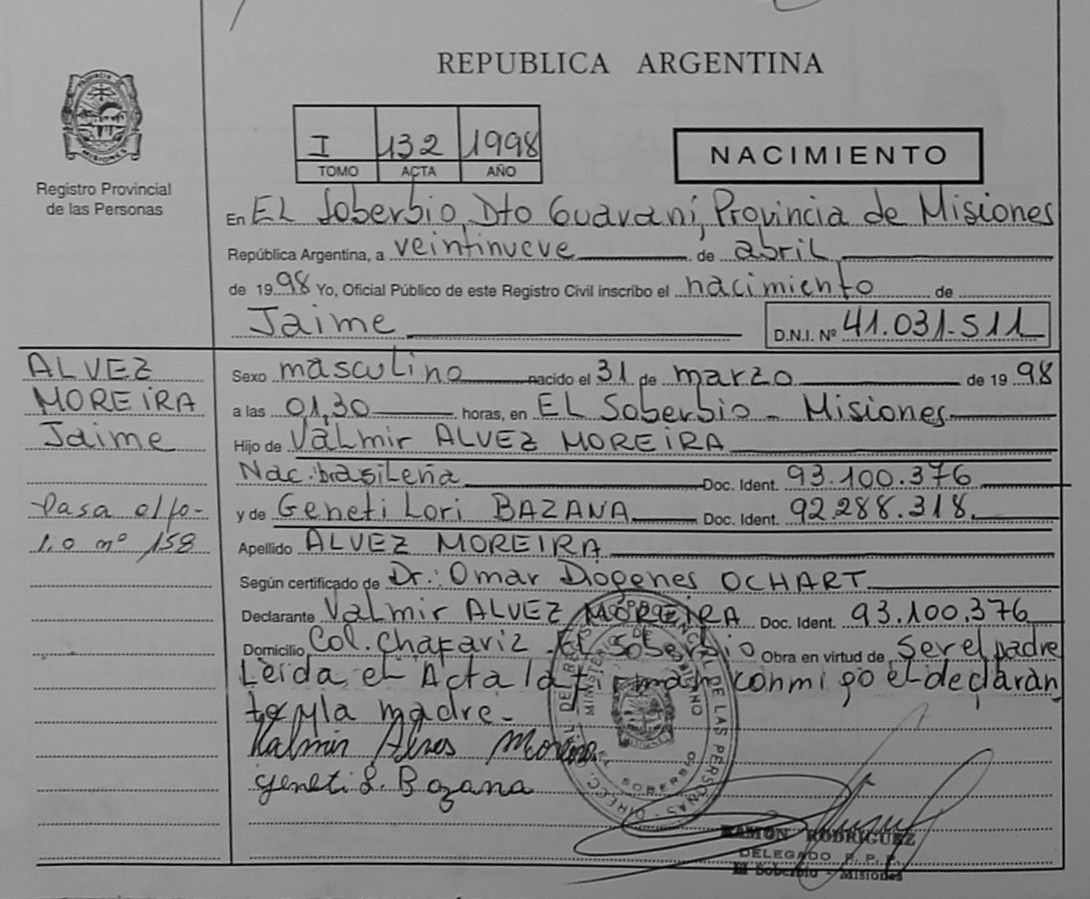 REPUBLICA ARGENTINA
PROVINCIA DE
MISIONES
Registro Provincial
de las Personas
I 132 1998
TOMO ACTA AÑO
NACIMIENTO
En EL Soberbio, Dto Guaraní, Provincia de Misiones
República Argentina, a veintinueve de abril
de 1998 Yo, Oficial Público de este Registro Civil inscribo el nacimiento de
Jaime D.N.I. Nº 41.031.511
ALVEZ
MOREIRA
Jaime
Pasa al fo-
lio nº 158
Sexo masculino nacido el 31 de marzo de 1998
a las 01,30 horas, en EL Soberbio - Misiones
Hijo de Valmir ALVEZ MOREIRA
Nac. brasileña Doc. Ident. 93.100.376
y de Geneti Lori BAZANA Doc. Ident. 92.288.318
Apellido ALVEZ MOREIRA
Según certificado de Dr.: Omar Diogenes OCHART
Declarante Valmir ALVEZ MOREIRA Doc. Ident. 93.100.376
Domicilio Col. Chafariz - EL Soberbio Obra en virtud de Ser el padre
Leida el Acta la firman conmigo el declaran
te y la madre.-
Valmir Alves Moreira
Geneti L. Bazana
DIRECC. GRAL. DEL REGISTRO PROVINCIAL DE LAS PERSONAS
MINISTERIO DE GOBIERNO
EL SOBERBIO
RAMON RODRIGUEZ
DELEGADO R. P. P.
El Soberbio - Misiones